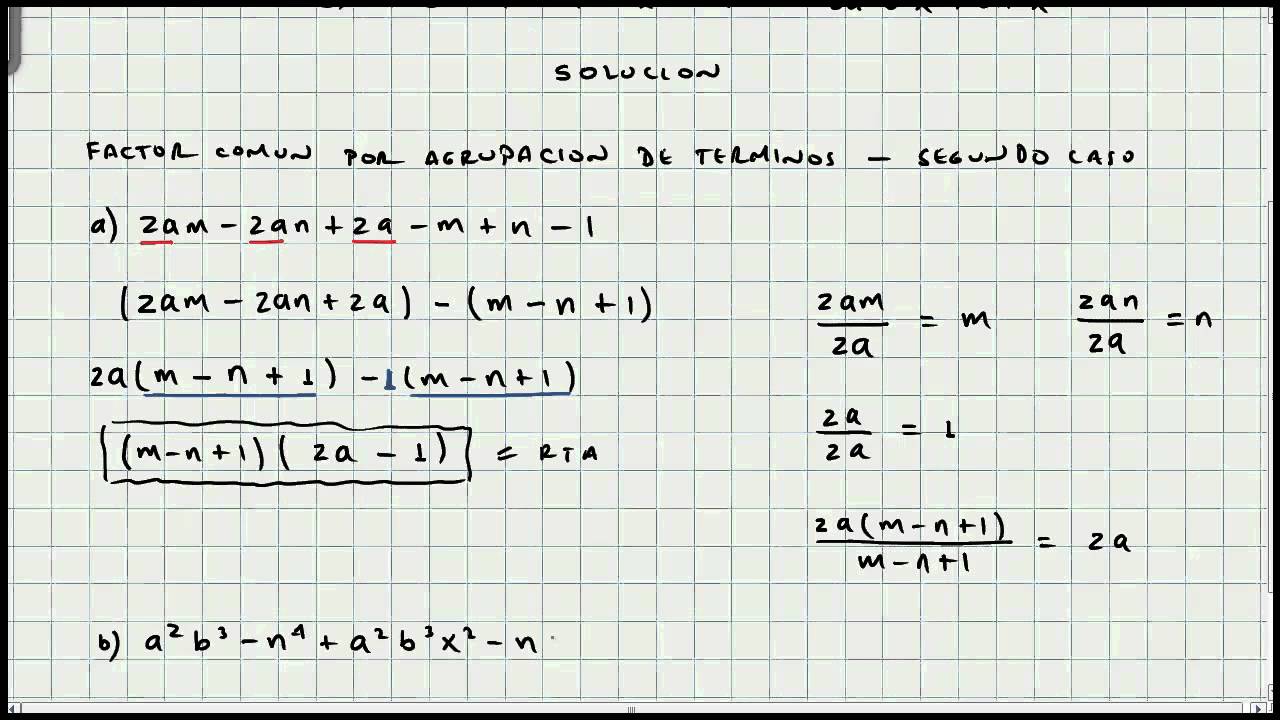 SOLUCION
FACTOR COMUN POR AGRUPACION DE TERMINOS — SEGUNDO CASO
a) 2am - 2an + 2a - m + n - 1
(2am - 2an + 2a) - (m - n + 1)
2am/2a = m
2an/2a = n
2a(m - n + 1) - 1(m - n + 1)
2a/2a = 1
(m-n+1)( 2a - 1) = RTA
2a(m-n+1)/m-n+1 = 2a
b) a² b³ - n⁴ + a² b³ x² - n